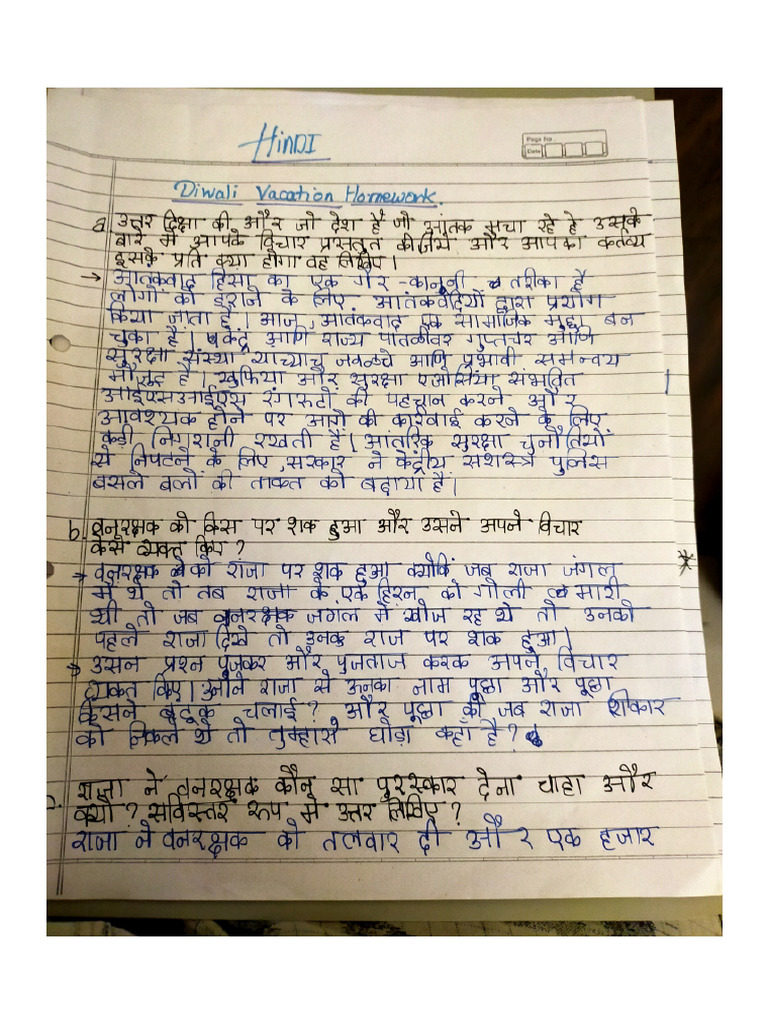 HINDI
Page No
Date
Diwali Vacation Homework.
a. उत्तर दिक्षा की और जो देश है जो आंतक मचा रहे हे उसके
बारे मे आपके विचार प्रस्तूत कीजिये और आपका कर्तव्य
इसके प्रति क्या होगा वह लिखिए।
→ आतंकवाद हिंसा का एक गैर-कानूनी तरीका है
लोगों को डराने के लिए आतंकवादियों द्वारा प्रयोग
किया जाता है। आज, आतंकवाद एक सामाजिक मुद्दा बन
चुका है। केंद्र आणि राज्य पातळीवर गुप्तचर आणि
सुरक्षा संस्था याच्याच जवळचे आणि प्रभावी समन्वय
मौजूद है। खुफिया और सुरक्षा एजेंसियां संभावित
आईएसआईएस रंगरूटों की पहचान करने और
आवश्यक होने पर आगे की कार्रवाई करने के लिए
कड़ी निगरानी रखती हैं। आंतरिक सुरक्षा चुनौतियों
से निपटने के लिए, सरकार ने केंद्रीय सशस्त्र पुलिस
बसले बलों की ताकत को बढ़ाया है।
b. वनरक्षक को किस पर शक हुआ और उसने अपने विचार
कैसे व्यक्त किए?
→ वनरक्षक को राजा पर शक हुआ क्योंकि जब राजा जंगल
मे थे तो तब राजा के एक हिरन को गोली मारी
थी तो जब वनरक्षक जंगल में खोज रह थे तो उनको
पहले राजा दिखे तो उनक राज पर शक हुआ।
→ उसन प्रश्न पुजकर और पुजताज करक अपने विचार
व्यकत किए। उनोने राजा से ऊनका नाम पूछा और पूछा
किसने बंदूक चलाई? और पूछा की जब राजा शीकार
को निकले थे तो तुम्हारो घोडा कहाँ है?
राजा ने वनरक्षक कौन सा पुरस्कार देना चाहा और
क्यो? सविस्तर रूप मे उत्तर लिखिए?
राजा ने वनरक्षक को तलवार दी और एक हजार